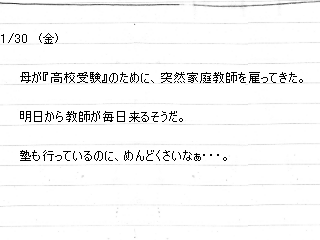 1/30 (金)
母が『高校受験』のために、突然家庭教師を雇ってきた。
明日から教師が毎日来るそうだ。
塾も行っているのに、めんどくさいなぁ・・・。